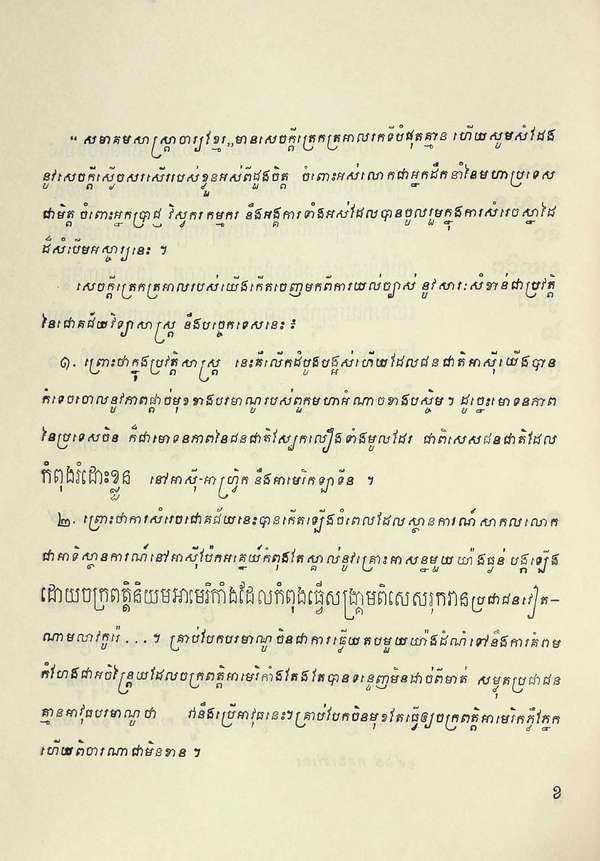 “ សមាគមសាស្ត្រាចារ្យខ្មែរ,,មានសេចក្ដីត្រេកត្រអាលរកទីបំផុតគ្មាន ហើយសូមសំដែង
នូវសេចក្ដីស្ងើចសរសើររបស់ខ្លួនអស់ពីដួងចិត្ត ចំពោះអស់លោកជាអ្នកដឹកនាំនៃមហាប្រទេស
ជាមិត្ត ចំពោះអ្នកប្រាជ្ញ វិស្វករកម្មករ នឹងអង្គការទាំងអស់ដែលបានចូលរួមក្នុងការសំរេចស្នាដៃ
ដ៏សំបើមអស្ចារ្យនេះ ។
សេចក្ដីត្រេកត្រអាលរបស់យើងកើតចេញមកពីការយល់ច្បាស់ នូវសារៈសំខាន់ជាប្រវត្តិ
នៃជោគជ័យវិទ្យាសាស្ត្រ នឹងបច្ចេកទេសនេះ ៖
១. ព្រោះថាក្នុងប្រវត្តិសាស្ត្រ នេះគឺលើកដំបូងបង្អស់ហើយដែលជនជាតិអាស៊ីយើងបាន
កំទេចចោលនូវភាពផ្ដាច់មុខខាងបរមាណូរបស់ពួកមហាអំណាចខាងបស្ចិម។ ដូច្នេះមោទនភាព
នៃប្រទេសចិន ក៏ជាមោទនភាពនៃជនជាតិស្បែកលឿងទាំងមូលដែរ ជាពិសេសជនជាតិដែល
កំពុងរំដោះខ្លួន នៅអាស៊ី-អាហ្វ្រិក នឹងអាមេរិកឡាទីន ។
២. ព្រោះថាការសំរេចជោគជ័យនេះបានកើតឡើងចំពេលដែលស្ថានការណ៍សាកលលោក
ជាអាទិស្ថានការណ៍នៅអាស៊ីប៉ែកអគ្នេយ៍កំពុងតែស្គាល់នូវគ្រោះអាសន្នមួយយ៉ាងធ្ងន់ បង្កឡើង
ដោយចក្រពត្តិនិយមអាមេរិកាំងដែលកំពុងធ្វើសង្គ្រាមពិសេសរុករានប្រជាជនវៀត-
ណាមលាវកូរ៉េ . . . ។ គ្រាប់បែកបរមាណូចិនជាការឆ្លើយតបមួយយ៉ាងដំណំទៅនឹងការគំរាម
កំហែងជាអចិន្ត្រៃយដែលចក្រពត្តិអាមេរិកាំងតែងតែបានទន្ទេញមិនដាច់ពីមាត់ សម្លុតប្រជាជន
គ្មានអាវុធបរមាណូថា វានឹងប្រើអាវុធនេះ។គ្រាប់បែកចិនមុខតែធ្វើឲ្យចក្រពត្តិអាមេរិកភ្ញឺភ្នែក
ហើយពិចារណាជាមិនខាន ។